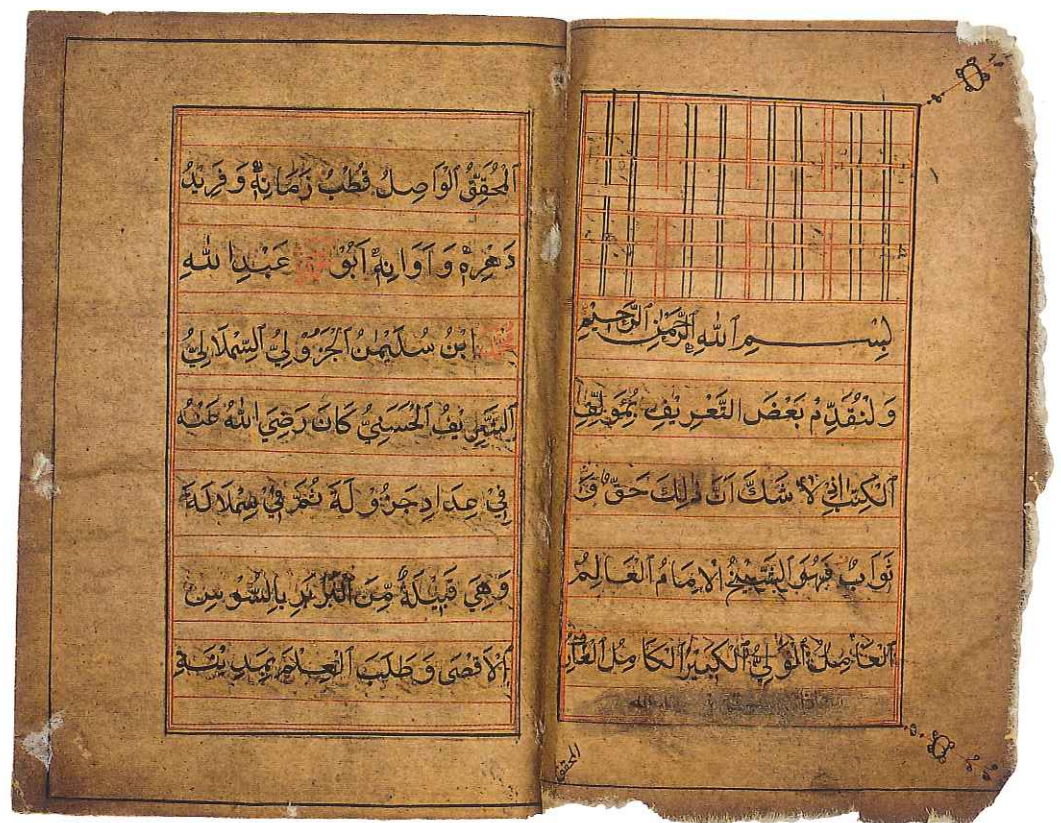 بِسْمِ ٱللهِ ٱلرَّحْمٰنِ ٱلرَّحِيْمِ
وَلْنُقَدِّمْ بَعْضَ التَّعْرِيْفِ بِمُؤَلِّفِ
ٱلْكِتٰبِ اِذْ لَا شَكَّ اَنَّ ذٰلِكَ حَقٌّ وَّ
ثَوَابٌ فَهُوَ ٱلشَّيْخُ الْاِمَامُ ٱلْعَالِمُ
ٱلْعَامِلُ ٱلْوَلِيُّ ٱلْكَبِيْرُ ٱلْكَامِلُ ٱلْعَارِفُ
المحقق
ٱلْمُحَقِّقُ ٱلْوَاصِلُ قُطْبُ زَمَانِهٖ وَفَرِيْدُ
دَهْرِهٖ وَاَوَانِهٖ اَبُوْ عَبْدِ اللهِ
مُحَمَّدُ ابْنُ سُلَيْمٰنَ ٱلْجَزُوْلِيُّ ٱلسِّمْلَالِيُّ
ٱلشَّرِيْفُ ٱلْحَسَنِيُّ كَانَ رَضِيَ اللهُ عَنْهُ
فِيْ عِدَادِ جَزُوْلَةَ ثُمَّ فِيْ سِمْلَالَةَ
وَهِيَ قَبِيْلَةٌ مِّنَ ٱلْبَرْبَرِ بِالسُّوْسِ
ٱلْاَقْصٰى وَطَلَبَ ٱلْعِلْمَ بِمَدِيْنَةِ